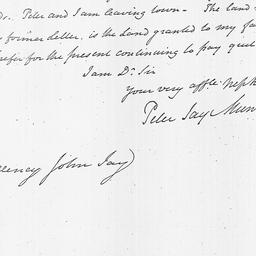 Peter and I am leaving town – The land
former letter, is the Land granted to my fa
prefer for the present continuing to pay quit
I am Dr. Sir
Your very affte. Neph
Peter Jay Mun
John Jay)